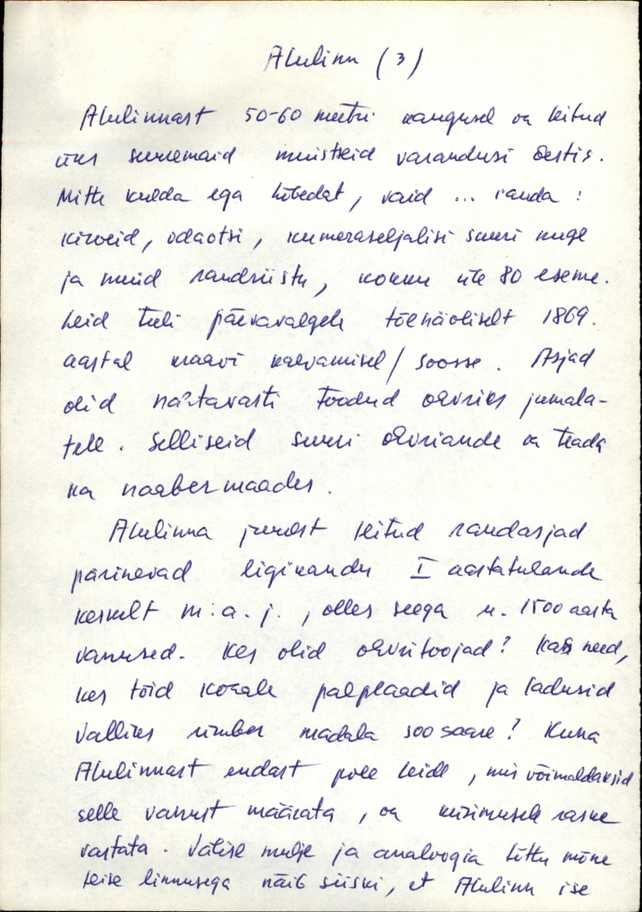 Alulinn (3)
Alulinnast 50-60 meetri kaugusel on leitud
üks suuremaid muistseid varandusi Eestis.
Mitte kulda ega hõbedat, vaid ... rauda:
kirveid, odaotsi, kumeraseljalisi suuri nuge
ja muid raudriistu, kokku üle 80 eseme.
Leid tuli päevavalgele tõenäoliselt 1869.
aastal kraavi kaevamisel / soosse. Asjad
olid nähtavasti toodud ohvriks jumala-
tele. Selliseid suuri ohvriande on teada
ka naabermaades.
Alulinna juurest leitud raudasjad
pärinevad ligikaudu I aastatuhande
keskelt m.a.j., olles seega u. 1500 aasta
vanused. Kes olid ohvritoojad? Kas need,
kes tõid kohale paeplaadid ja ladusid
valliks ümber madala soosaare? Kuna
Alulinnast endast pole leide, mis võimaldaksid
selle vanust määrata, on küsimusele raske
vastata. Välise mulje ja analoogia tõttu mõne
teise linnusega näib siiski, et Alulinn ise